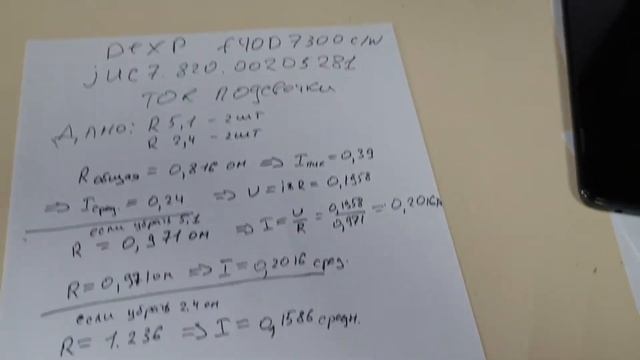 DEXP f40D7300c/w
JUC7.820.00205281
ТОК ПОДСВЕТКИ
ДАНО: R 5,1 - 2шт
R 2,4 - 2шт
R общая = 0,816 ом ⇒ I пик = 0,39
⇒ I сред. = 0,24 ⇒ U = i×R = 0,1958
если убрать 5.1
R = 0,971 ом ⇒ I = U/R = 0,1958/0,971 = 0,2016А
R = 0,971 ом ⇒ I = 0,2016 сред.
если убрать 2,4 ом
R = 1.236 ⇒ I = 0,1586 средн.